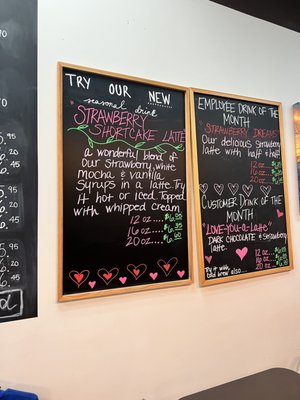 TRY OUR NEW
seasonal drink
"STRAWBERRY
SHORTCAKE LATTE"
a wonderful blend of
our strawberry, white
mocha & vanilla
syrups in a latte. Try
it hot or iced. Topped
with whipped cream.
12 oz.....
16 oz.....
20 oz.....
EMPLOYEE DRINK OF THE
MONTH
"STRAWBERRY DREAMS"
Our delicious strawberry
latte with half & half
12 oz.
16 oz.
20 oz.
CUSTOMER DRINK OF THE
MONTH
"LOVE-YOU-A-LATTE"
DARK CHOCOLATE & strawberry
latte.
Try with
cold brew also!
12 oz
16 oz
20 oz